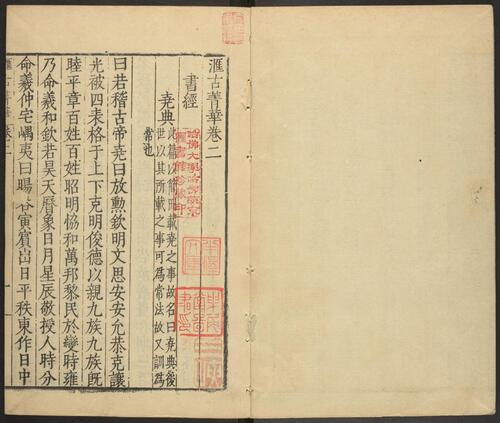 滙古菁華卷二
書經
堯典
此篇以簡冊載堯之事故名曰堯典後
世以其所載之事可為常法故又訓為
常也
曰若稽古帝堯曰放勲欽明文思安安允恭克讓
光被四表格于上下克明俊德以親九族九族旣
睦平章百姓百姓昭明協和萬邦黎民於變時雍
乃命羲和欽若昊天曆象日月星辰敬授人時分
命羲仲宅嵎夷曰暘谷寅賔出日平秩東作日中